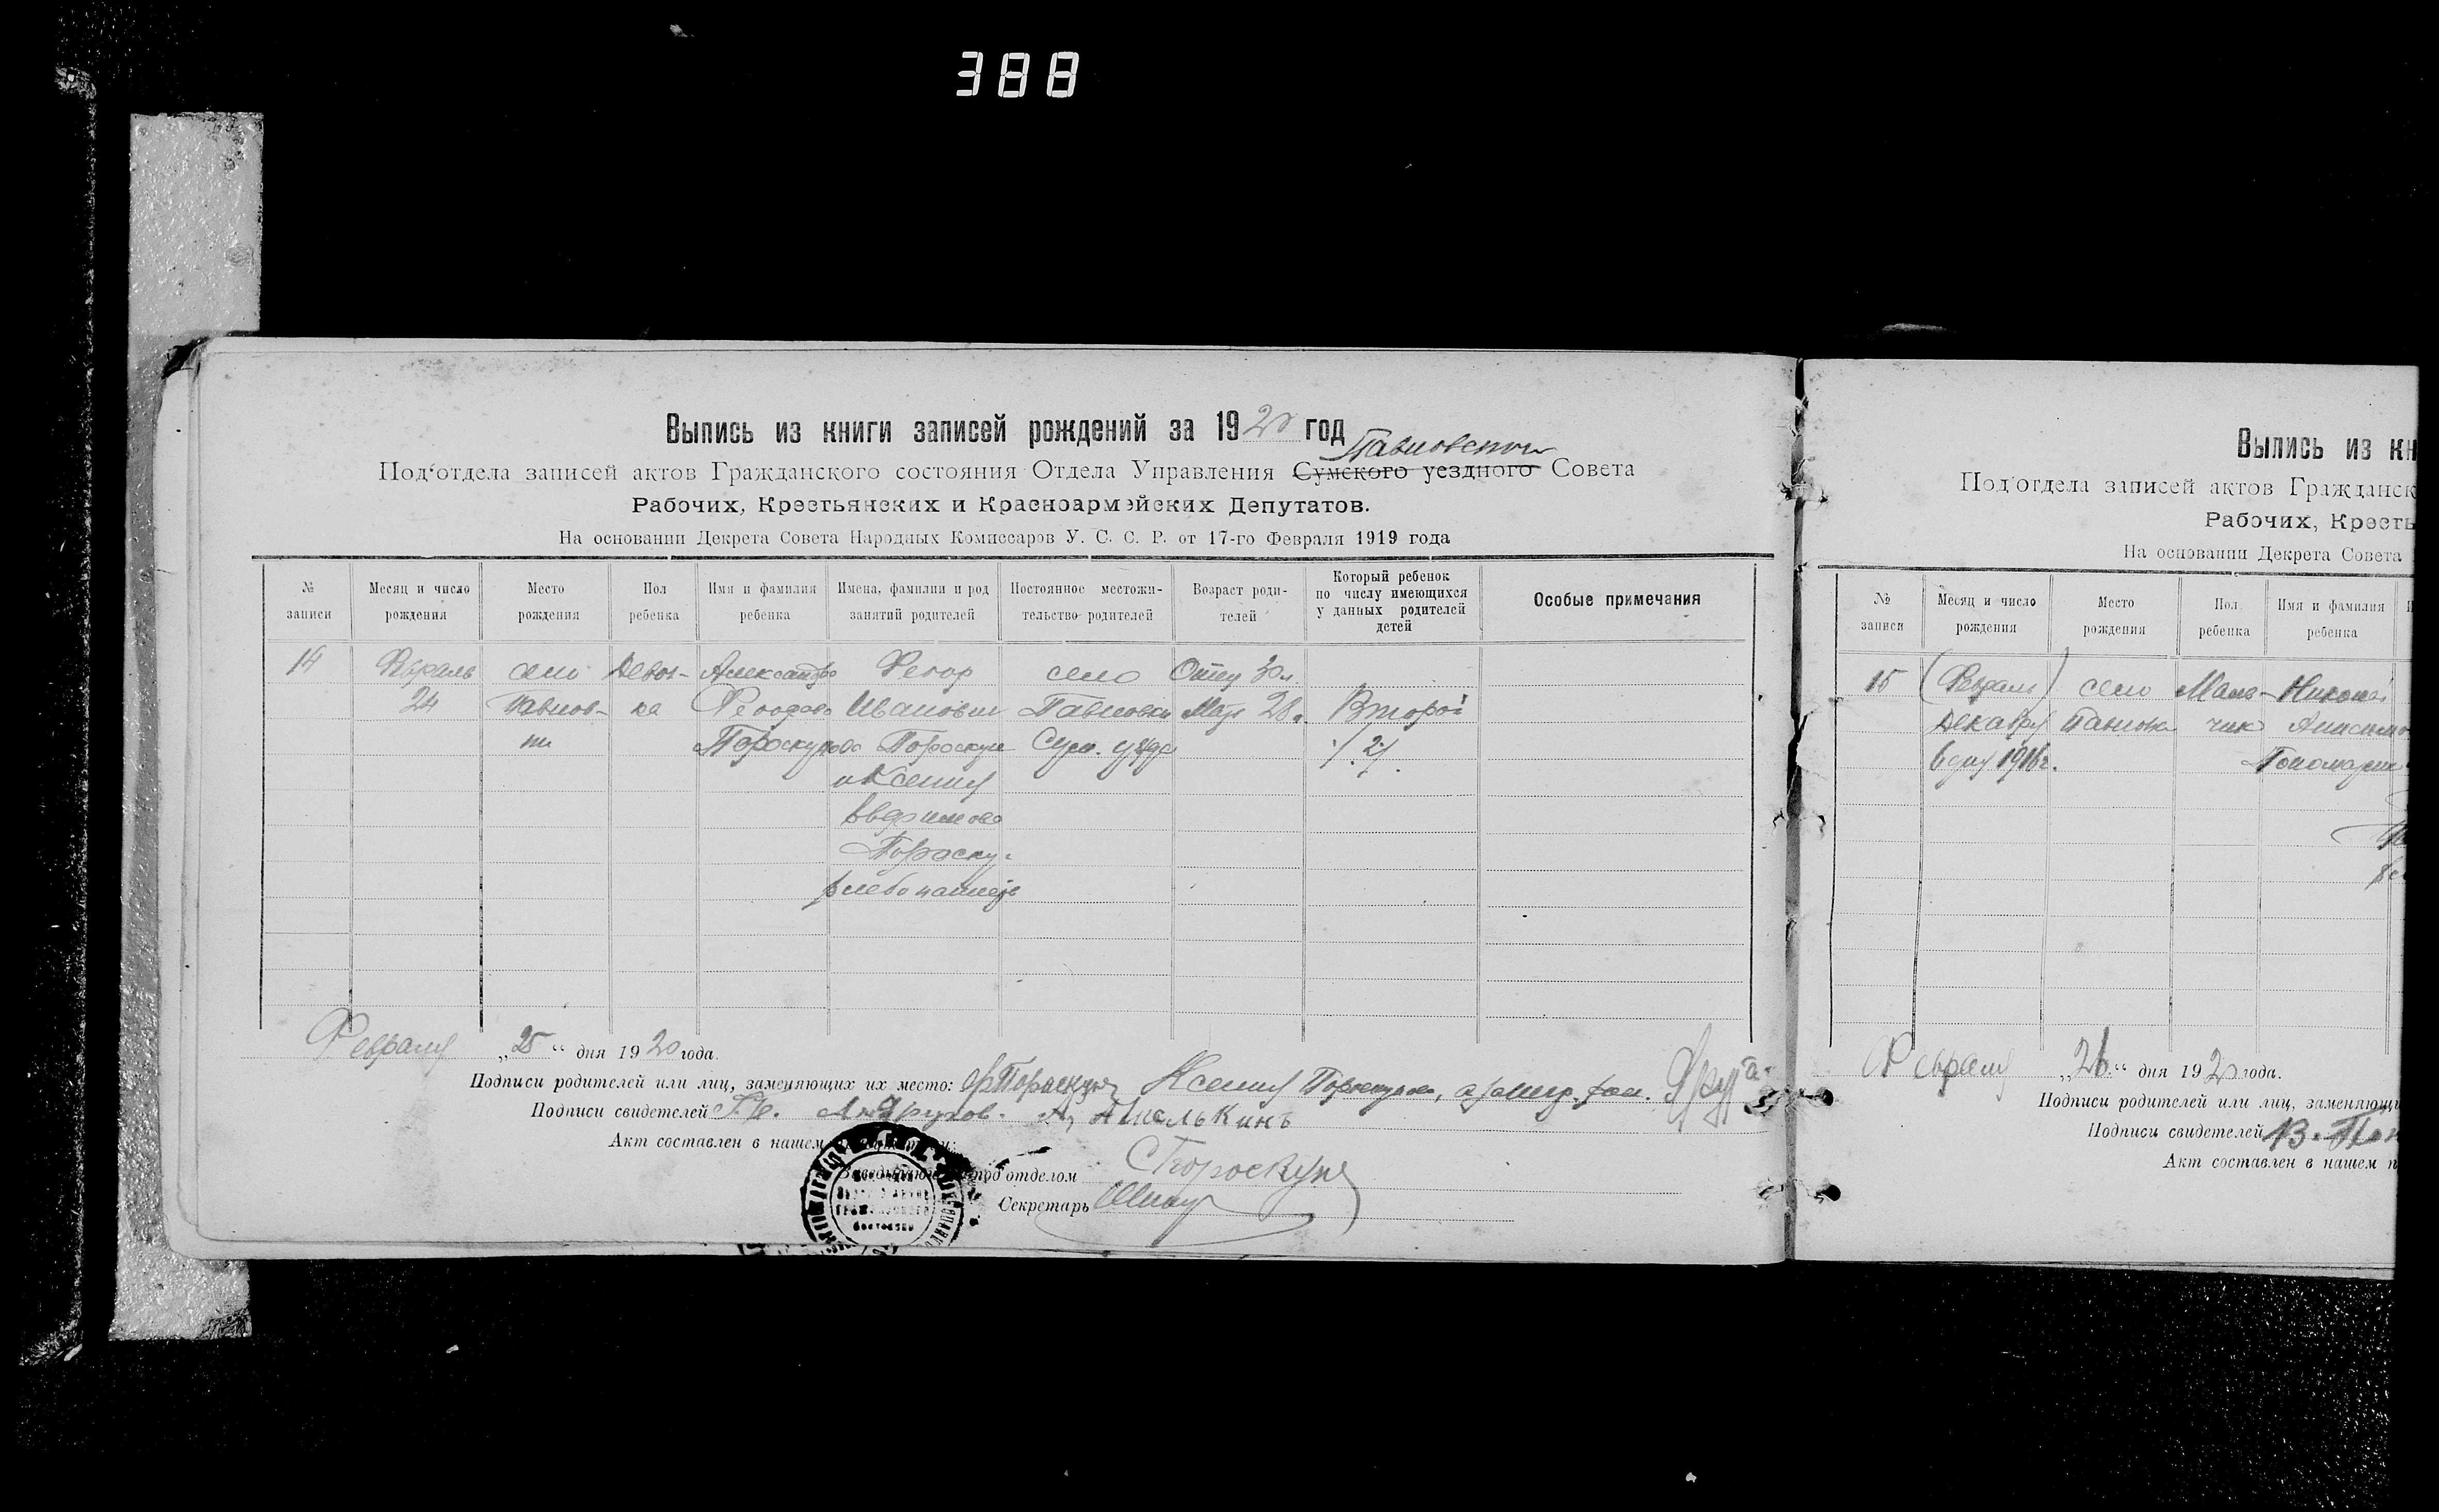 388
Выпись из книги записей рождений за 1920 год
Павловского
Под'отдела записей актов Гражданского состояния Отдела Управления Сумского уездного Совета
Рабочих, Крестьянских и Красноармейских Депутатов.
На основании Декрета Совета Народных Комиссаров У. С. С. Р. от 17-го Февраля 1919 года
№ записи
Месяц и число рождения
Место рождения
Пол ребенка
Имя и фамилия ребенка
Имена, фамилии и род занятий родителей
Постоянное местожительство родителей
Возраст родителей
Который ребенок по числу имеющихся у данных родителей детей
Особые примечания
14 Февраль село Девоч- Александра Федор село Отцу 30 л.
24 Павлов- ка Феодоро Иванович Павловки Мать 28 л. Второй
ки Пороскуно Сум. уезд /2/
и Ксения
Пороску-
хлебопашец
Февраля „25“ дня 1920 года.
Подписи родителей или лиц, заменяющих их место: Ксения
Подписи свидетелей
Акт составлен в нашем
Заведывающий под'отделом
Секретарь
Выпись из кн
Под'отдела записей актов Гражданск
Рабочих, Кресть
На основании Декрета Совета
№ записи
Месяц и число рождения
Место рождения
Пол ребенка
Имя и фамилия ребенка
15 (Февраль) село Маль- Николай
Декабря Павловка чик
6 дня 1918 г. Пономарен
Февраля „26“ дня 1920 года.
Подписи родителей или лиц, заменяющи
Подписи свидетелей
Акт составлен в нашем п